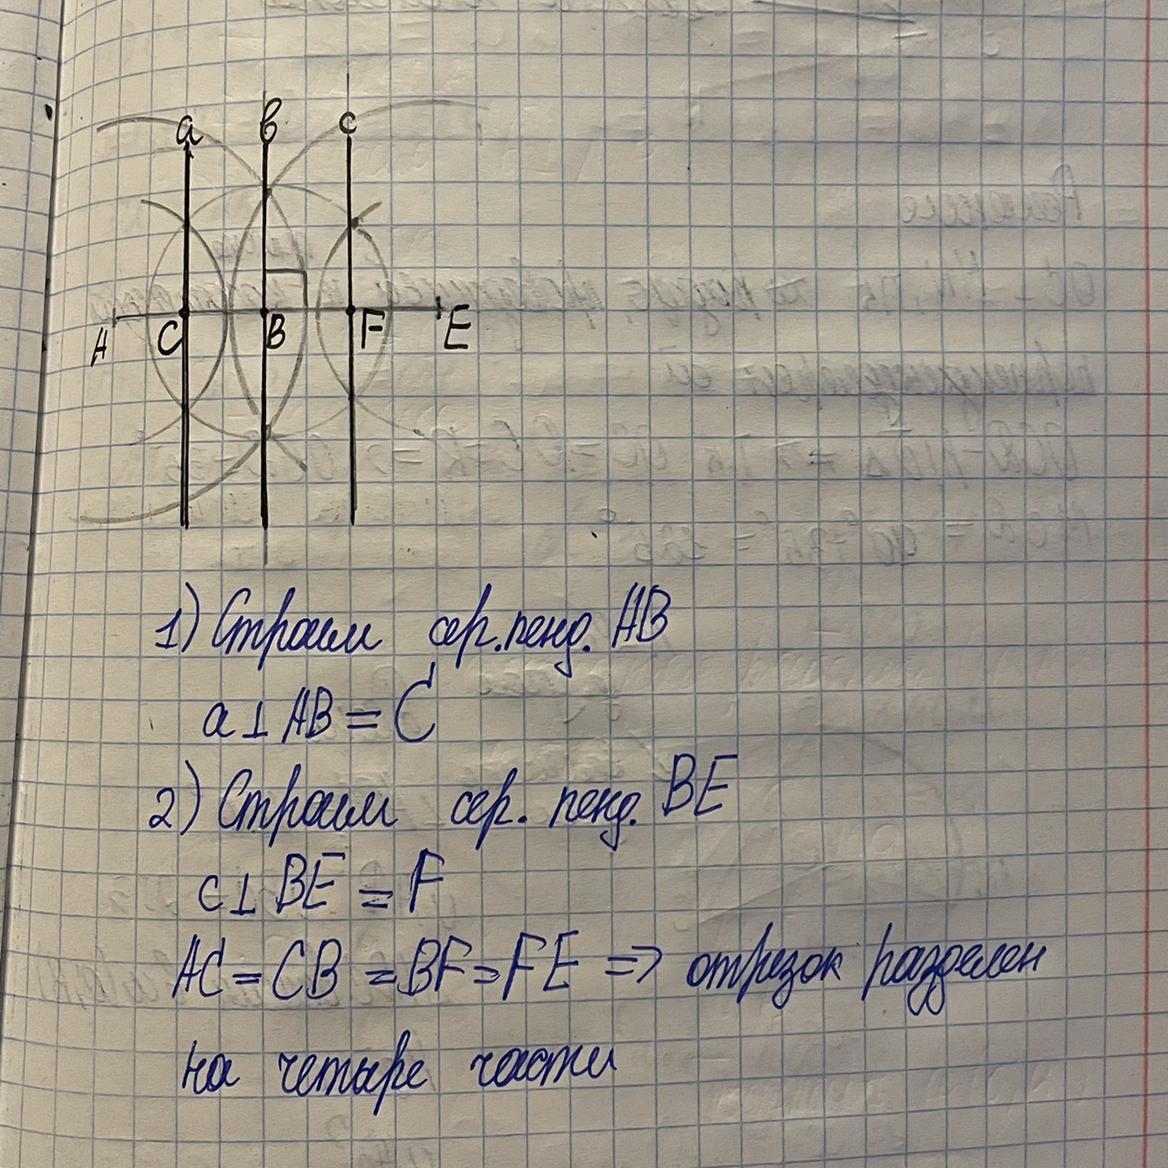 a b c
A C B F E
1) Строим сер.пенд. AB
a⊥AB = C
2) Строим сер. пенд. BE
c⊥BE = F
AC = CB = BF = FE => отрезок разделен
на четыре части